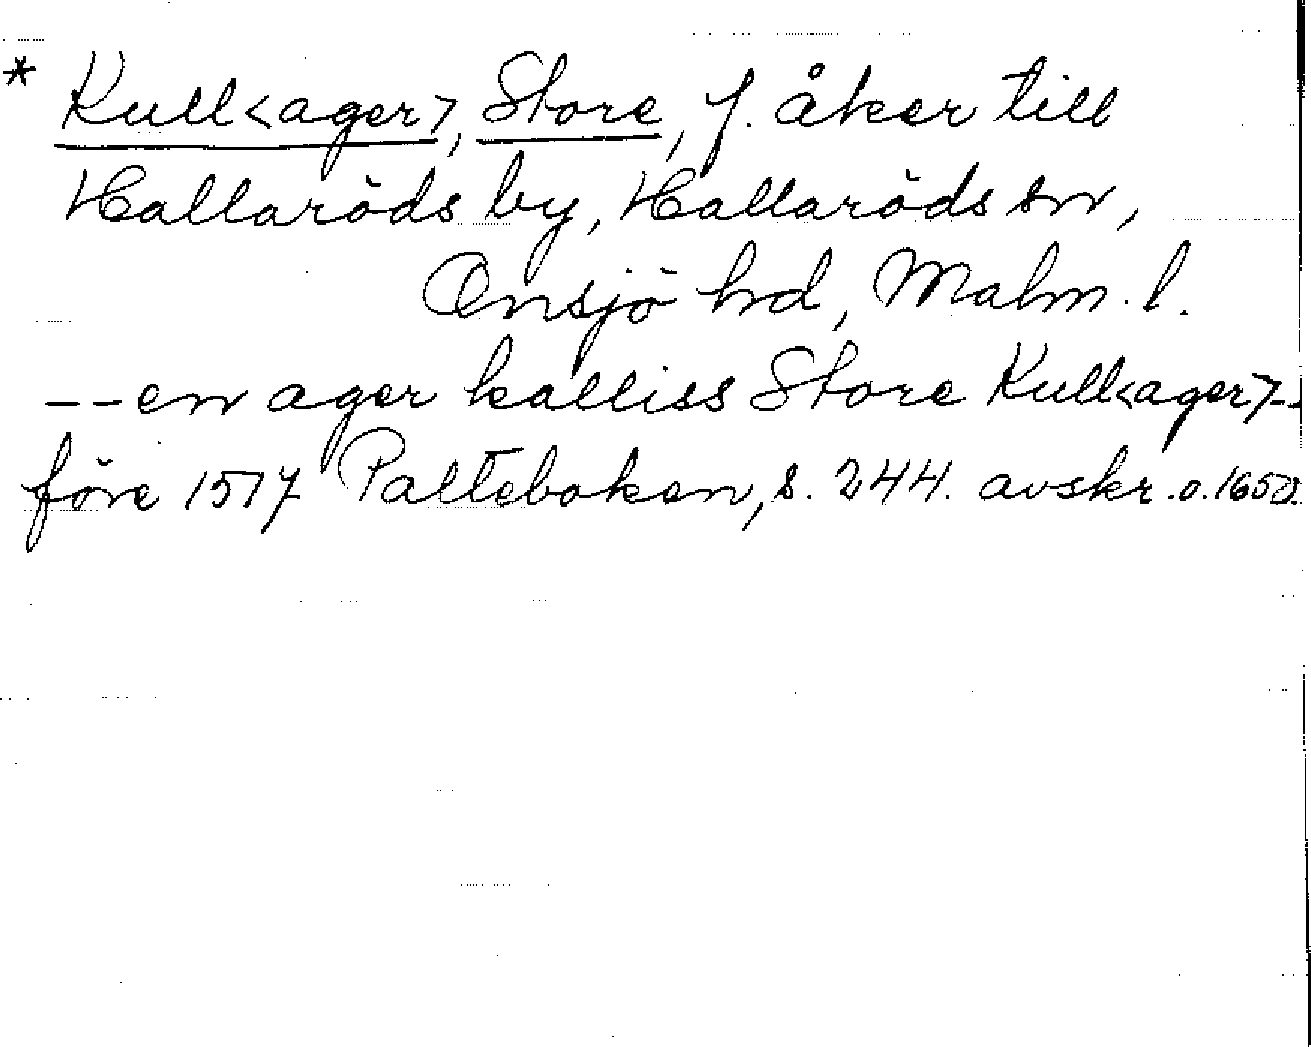 * Kull<ager>, Store, f. åker till
Hallaröds by, Hallaröds sn,
Onsjö hd, Malm. l.
-- en ager kalliss Store Kull<ager>--
före 1517 Palteboken, s. 244. avskr. o. 1650.